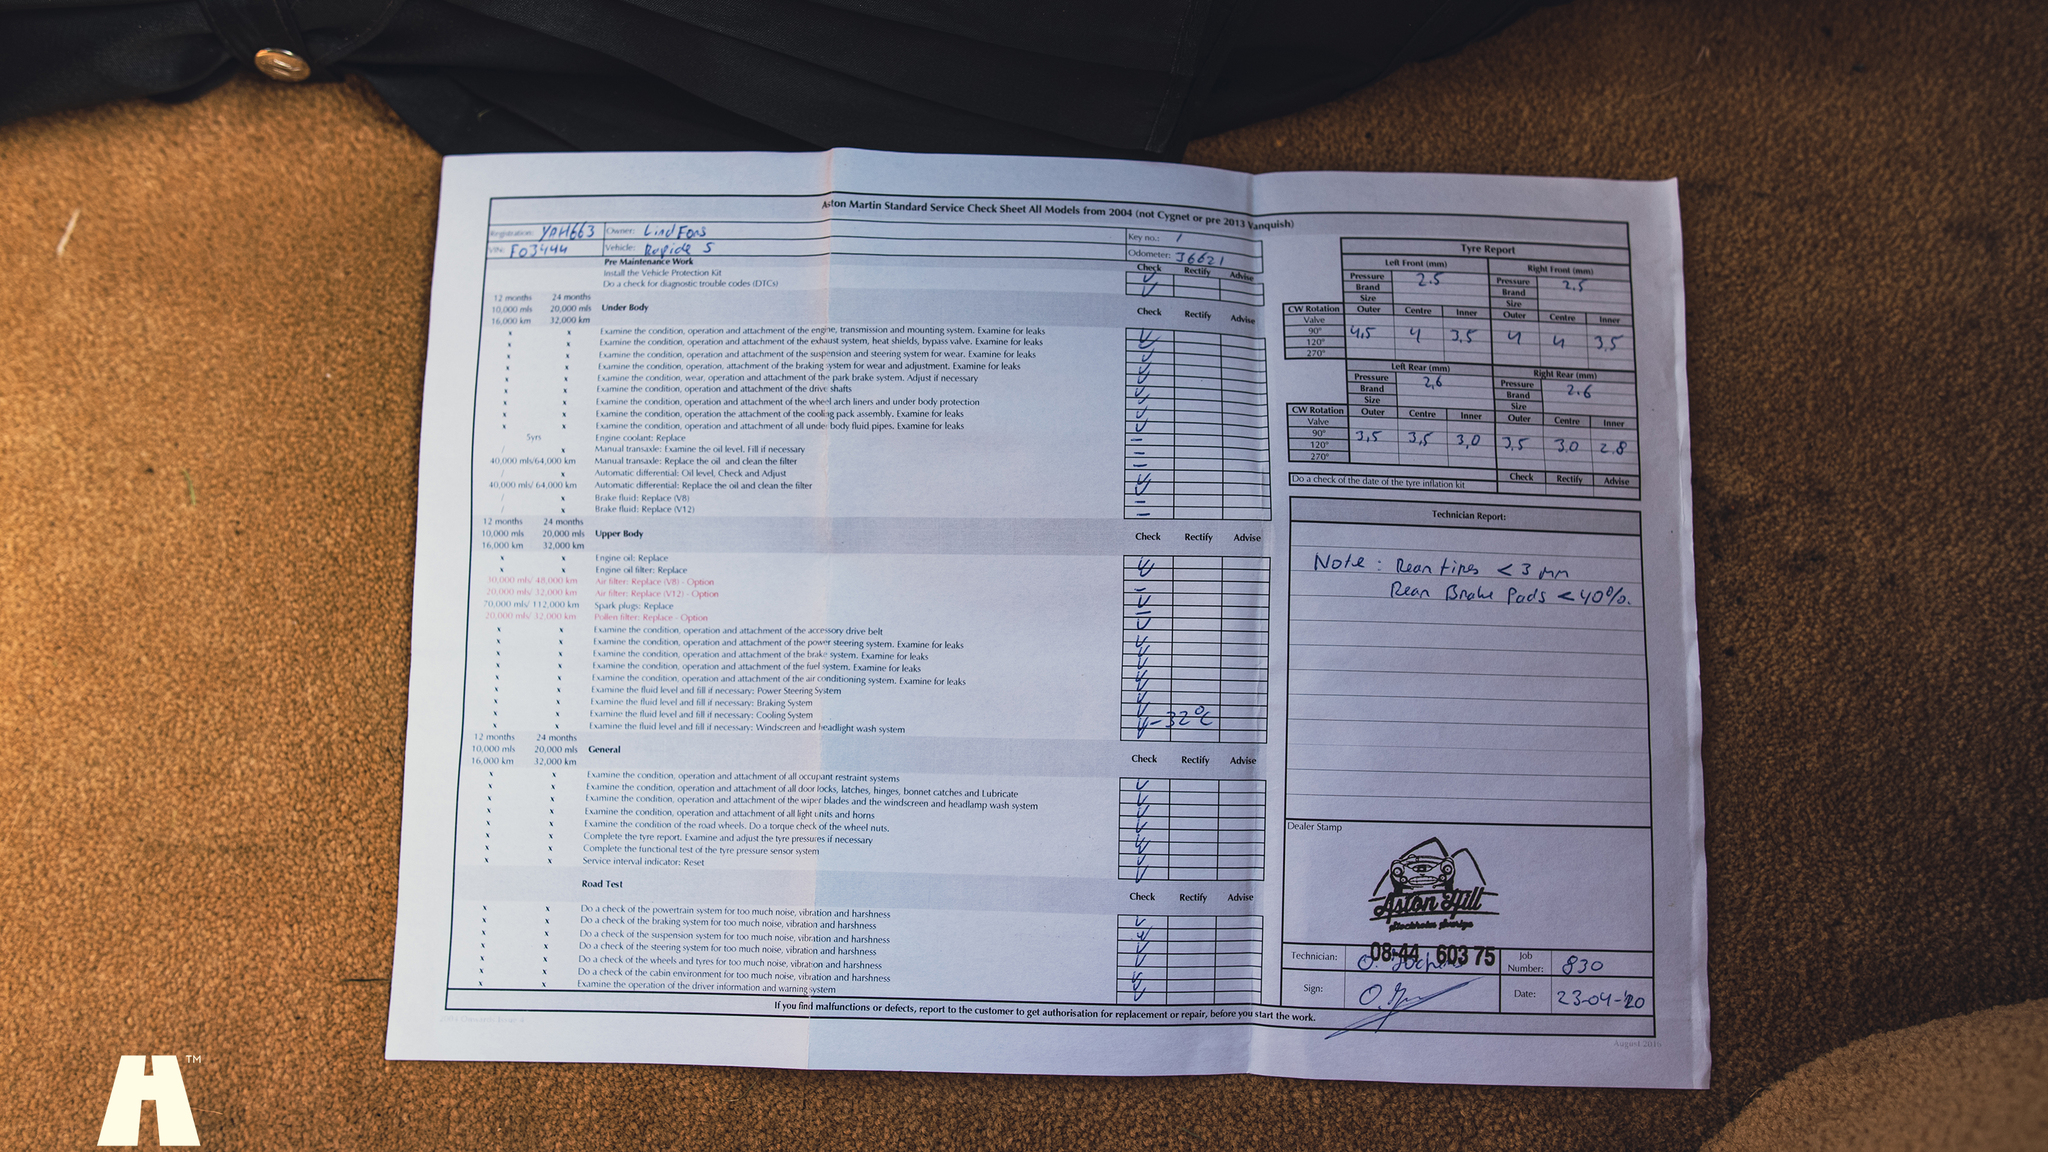 Aston Martin Standard Service Check Sheet All Models from 2004 (not Cygnet or pre 2013 Vanquish)
Registration: YAH663 Owner: Lind Fors Key no.: 1
VIN: F03444 Vehicle: Rapide S Odometer: 36621
Pre Maintenance Work Check Rectify Advise
Install the Vehicle Protection Kit
Do a check for diagnostic trouble codes (DTCs)
12 months 24 months
10,000 mls 20,000 mls Under Body Check Rectify Advise
16,000 km 32,000 km
x x Examine the condition, operation and attachment of the engine, transmission and mounting system. Examine for leaks
x x Examine the condition, operation and attachment of the exhaust system, heat shields, bypass valve. Examine for leaks
x x Examine the condition, operation and attachment of the suspension and steering system for wear. Examine for leaks
x x Examine the condition, operation, attachment of the braking system for wear and adjustment. Examine for leaks
x x Examine the condition, wear, operation and attachment of the park brake system. Adjust if necessary
x x Examine the condition, operation and attachment of the drive shafts
x x Examine the condition, operation and attachment of the wheel arch liners and under body protection
x x Examine the condition, operation the attachment of the cooling pack assembly. Examine for leaks
x x Examine the condition, operation and attachment of all under body fluid pipes. Examine for leaks
5yrs Engine coolant: Replace
/ x Manual transaxle: Examine the oil level. Fill if necessary
40,000 mls/64,000 km Manual transaxle: Replace the oil and clean the filter
/ x Automatic differential: Oil level, Check and Adjust
40,000 mls/ 64,000 km Automatic differential: Replace the oil and clean the filter
/ x Brake fluid: Replace (V8)
/ x Brake fluid: Replace (V12)
12 months 24 months
10,000 mls 20,000 mls Upper Body Check Rectify Advise
16,000 km 32,000 km
x x Engine oil: Replace
x x Engine oil filter: Replace
30,000 mls/ 48,000 km Air filter: Replace (V8) - Option
20,000 mls/ 32,000 km Air filter: Replace (V12) - Option
70,000 mls/ 112,000 km Spark plugs: Replace
20,000 mls/ 32,000 km Pollen filter: Replace - Option
x x Examine the condition, operation and attachment of the accessory drive belt
x x Examine the condition, operation and attachment of the power steering system. Examine for leaks
x x Examine the condition, operation and attachment of the brake system. Examine for leaks
x x Examine the condition, operation and attachment of the fuel system. Examine for leaks
x x Examine the condition, operation and attachment of the air conditioning system. Examine for leaks
x x Examine the fluid level and fill if necessary: Power Steering System
x x Examine the fluid level and fill if necessary: Braking System
x x Examine the fluid level and fill if necessary: Cooling System -32°C
x x Examine the fluid level and fill if necessary: Windscreen and headlight wash system
12 months 24 months
10,000 mls 20,000 mls General Check Rectify Advise
16,000 km 32,000 km
x x Examine the condition, operation and attachment of all occupant restraint systems
x x Examine the condition, operation and attachment of all door locks, latches, hinges, bonnet catches and Lubricate
x x Examine the condition, operation and attachment of the wiper blades and the windscreen and headlamp wash system
x x Examine the condition, operation and attachment of all light units and horns
x x Examine the condition of the road wheels. Do a torque check of the wheel nuts.
x x Complete the tyre report. Examine and adjust the tyre pressures if necessary
x x Complete the functional test of the tyre pressure sensor system
x x Service interval indicator: Reset
Road Test Check Rectify Advise
x x Do a check of the powertrain system for too much noise, vibration and harshness
x x Do a check of the braking system for too much noise, vibration and harshness
x x Do a check of the suspension system for too much noise, vibration and harshness
x x Do a check of the steering system for too much noise, vibration and harshness
x x Do a check of the wheels and tyres for too much noise, vibration and harshness
x x Do a check of the cabin environment for too much noise, vibration and harshness
x x Examine the operation of the driver information and warning system
If you find malfunctions or defects, report to the customer to get authorisation for replacement or repair, before you start the work.
Tyre Report
Left Front (mm) Right Front (mm)
Pressure 2.5 Pressure 2.5
Brand Brand
Size Size
CW Rotation Outer Centre Inner Outer Centre Inner
Valve
90° 4,5 4 3,5 4 4 3,5
120°
270°
Left Rear (mm) Right Rear (mm)
Pressure 2,6 Pressure 2.6
Brand Brand
Size Size
CW Rotation Outer Centre Inner Outer Centre Inner
Valve
90° 3,5 3,5 3,0 3,5 3,0 2.8
120°
270°
Do a check of the date of the tyre inflation kit Check Rectify Advise
Technician Report:
Note: Rear tires < 3 mm
Rear Brake Pads < 40%.
Dealer Stamp
Aston Hill
Stockholm Sverige
08-44 603 75
Technician: O. Job Number: 830
Sign: Date: 23-04-'20
August 2016
H™